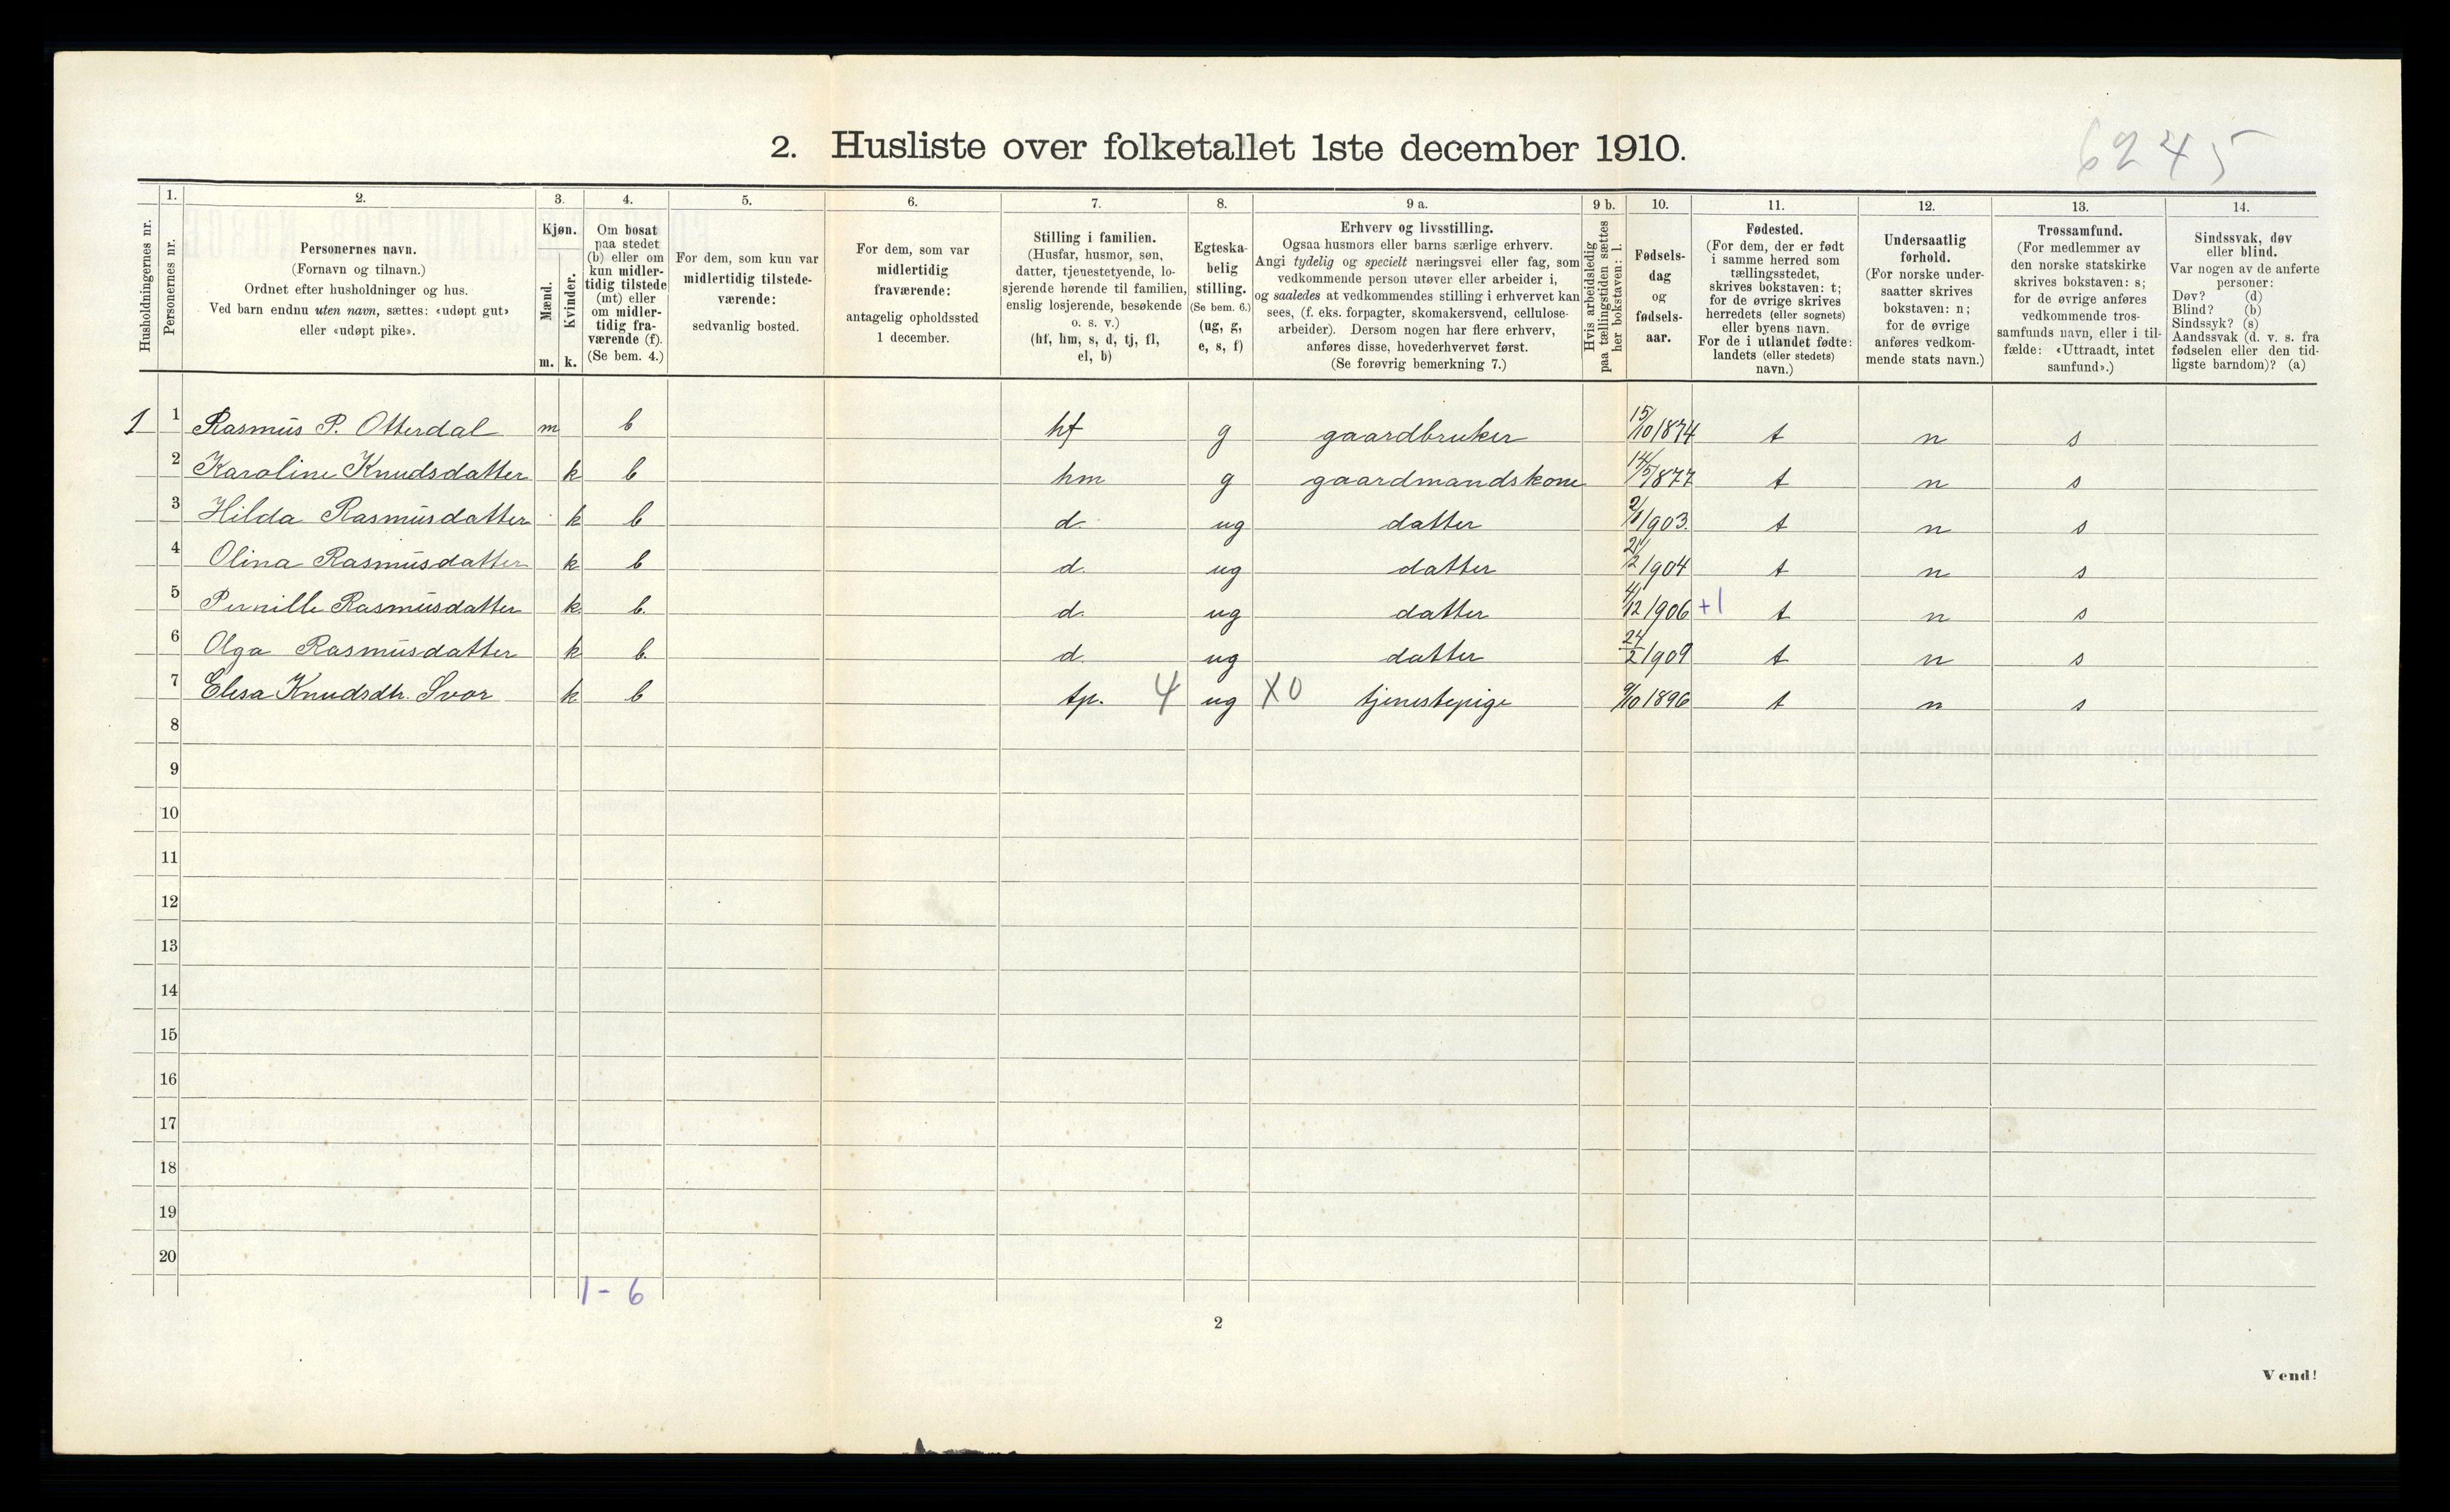 2. Husliste over folketallet 1ste december 1910.
6245
Husholdningernes nr.
1.
Personernes nr.
2.
Personernes navn.
(Fornavn og tilnavn.)
Ordnet efter husholdninger og hus.
Ved barn endnu uten navn, sættes: «udøpt gut»
eller «udøpt pike».
3.
Kjøn.
Mænd.
Kvinder.
m. k.
4.
Om bosat
paa stedet
(b) eller om
kun midler-
tidig tilstede
(mt) eller
om midler-
tidig fra-
værende (f).
(Se bem. 4.)
5.
For dem, som kun var
midlertidig tilstede-
værende:
sedvanlig bosted.
6.
For dem, som var
midlertidig
fraværende:
antagelig opholdssted
1 december.
7.
Stilling i familien.
(Husfar, husmor, søn,
datter, tjenestetyende, lo-
sjerende hørende til familien,
enslig losjerende, besøkende
o. s. v.)
(hf, hm, s, d, tj, fl,
el, b)
8.
Egteska-
belig
stilling.
(Se bem. 6.)
(ug, g,
e, s, f)
9 a.
Erhverv og livsstilling.
Ogsaa husmors eller barns særlige erhverv.
Angi tydelig og specielt næringsvei eller fag, som
vedkommende person utøver eller arbeider i,
og saaledes at vedkommendes stilling i erhvervet kan
sees, (f. eks. forpagter, skomakersvend, cellulose-
arbeider). Dersom nogen har flere erhverv,
anføres disse, hovederhvervet først.
(Se forøvrig bemerkning 7.)
9 b.
Hvis arbeidsledig
paa tællingstiden sættes
her bokstaven: l.
10.
Fødsels-
dag
og
fødsels-
aar.
11.
Fødested.
(For dem, der er født
i samme herred som
tællingsstedet,
skrives bokstaven: t;
for de øvrige skrives
herredets (eller sognets)
eller byens navn.
For de i utlandet fødte:
landets (eller stedets)
navn.)
12.
Undersaatlig
forhold.
(For norske under-
saatter skrives
bokstaven: n;
for de øvrige
anføres vedkom-
mende stats navn.)
13.
Trossamfund.
(For medlemmer av
den norske statskirke
skrives bokstaven: s;
for de øvrige anføres
vedkommende tros-
samfunds navn, eller i til-
fælde: «Uttraadt, intet
samfund».)
14.
Sindssvak, døv
eller blind.
Var nogen av de anførte
personer:
Døv? (d)
Blind? (b)
Sindssyk? (s)
Aandssvak (d. v. s. fra
fødselen eller den tid-
ligste barndom)? (a)
1 1 Rasmus P. Otterdal m b hf g gaardbruker 15/10 1874 t n s
2 Karoline Knudsdatter k b hm g gaardmandskone 14/5 1877 t n s
3 Hilda Rasmusdatter k b d. ug datter 2/1 1903. t n s
4 Olina Rasmusdatter k b d. ug datter 21/2 1904 t n s
5 Pernille Rasmusdatter k b. d. ug datter 4/12 1906 +1 t n s
6 Olga Rasmusdatter k b. d. ug datter 24/2 1909 t n s
7 Elesa Knudsdtr. Svor k b tp. 4 ug X0 tjenestepige 9/10 1896 t n s
8
9
10
11
12
13
14
15
16
17
18
19
20
1 - 6
2
Vend!